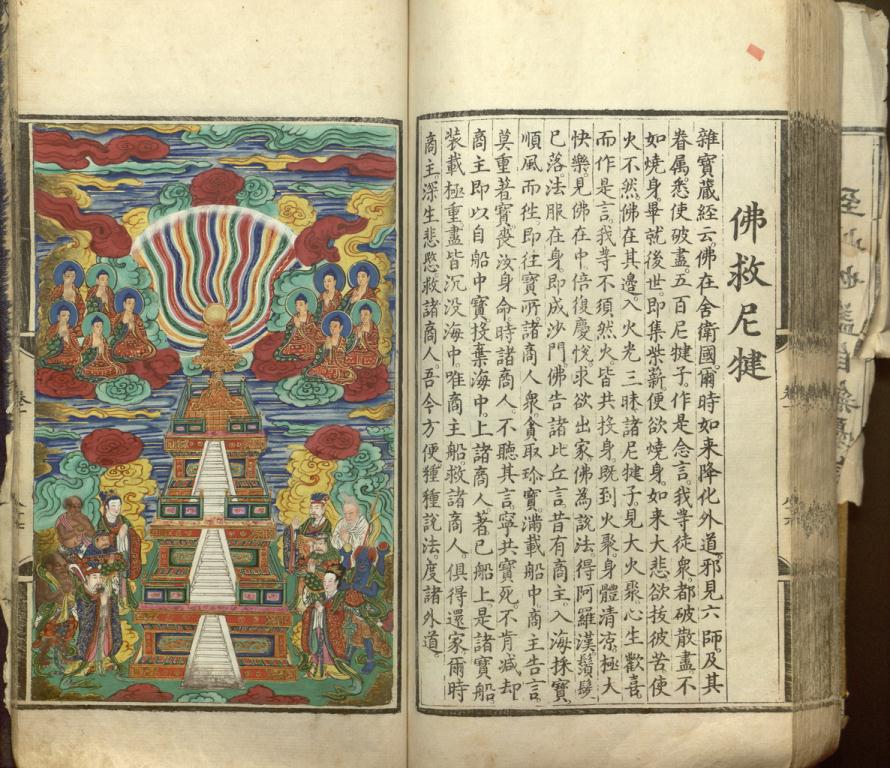 佛救尼犍
雜寶藏經云。佛在舍衛國。爾時如来降化外道。邪見六師。及其
眷属悉使破盡。五百尼犍子。作是念言。我等徒衆。都破散盡。不
如燒身。畢就後世。即集柴薪便欲燒身。如来大悲欲抜彼苦使
火不然。佛在其邊。入火光三昧。諸尼犍子見大火聚。心生歡喜。
而作是言。我等不須然火。皆共投身。既到火聚。身體清凉。極大
快樂。見佛在中。倍復慶悅。求欲出家。佛為說法。得阿羅漢。鬚髮
已落。法服在身。即成沙門。佛告諸比丘言。昔有商主。入海採寶。
順風而徃。即徃寶所。諸商人衆。貪取珎寶。滿載船中。商主告言。
莫重著寶。喪汝身命。時諸商人。不聽其言。寧共寶死。不肯减却。
商主即以自船中寶。投棄海中。上諸商人。著已船上。是諸寶船。
装載極重。盡皆沉没海中。唯商主船。救諸商人。俱得還家。爾時
商主。深生悲愍。救諸商人。吾今方便。種種說法。度諸外道。